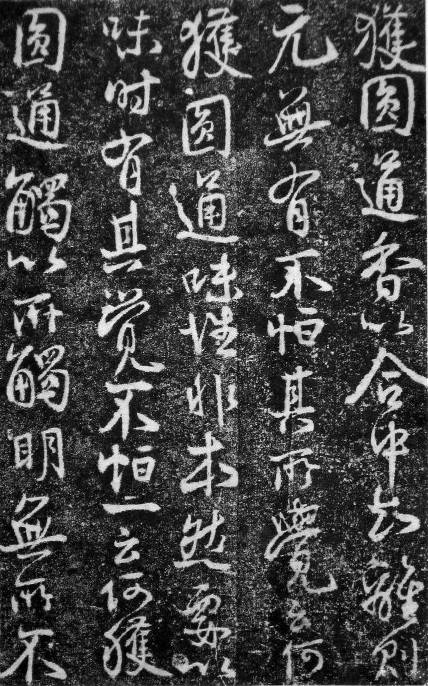 獲圓通香以合中知離則
元無有不恒其所覺云何
獲圓通味性非本然要以
味时有其觉不恒一云何獲
圓通觸以所觸明無所不